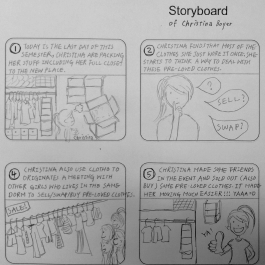 Storyboard
of Christina Soyer
① TODAY IS THE LAST DAY OF THIS
SEMESTER, CHRISTINA ARE PACKING
HER STUFF INCLUDING HER FULL CLOSET
TO THE NEW PLACE.
② CHRISTINA FINDS THAT MOST OF THE
CLOTHES SHE JUST WORE IT ONCE. SHE
STARTS TO THINK A WAY TO DEAL WITH
THESE PRE-LOVED CLOTHES.
?
SELL?
SWAP?
④ CHRISTINA ALSO USE CLOTHE TO
ORIGINATES A MEETING WITH
OTHER GIRLS WHO LIVES IN THE SAME
DORM TO SELL/SWAP/BUY PRE-LOVED CLOTHES.
SALE!
⑤ CHRISTINA MAKE SOME FRIENDS
IN THE EVENT AND SOLD OUT (ALSO
BUY) SOME PRE-LOVED CLOTHES. IT MADE
HER MOVING MUCH EASIER!